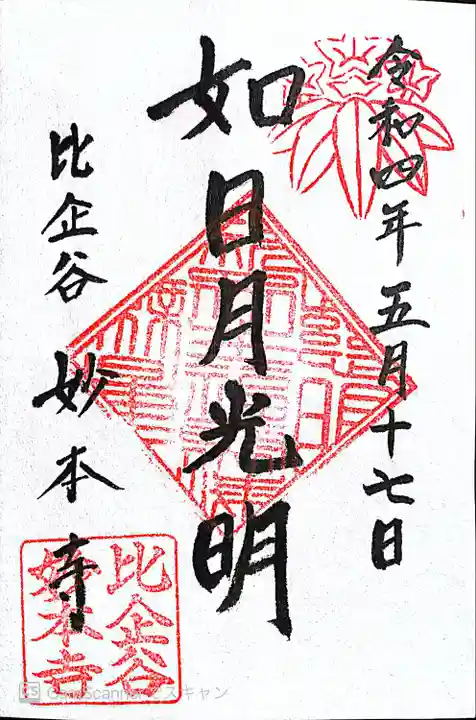 令和四年五月十七日
如日月光明
比企谷 妙本寺
比企谷
妙本寺
CS CamScanner でスキャン